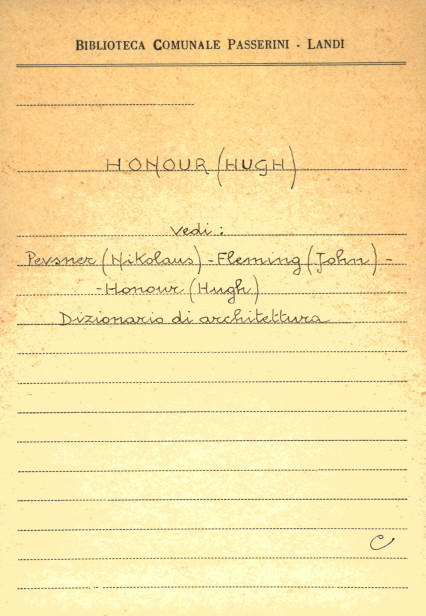 BIBLIOTECA COMUNALE PASSERINI - LANDI
HONOUR (HUGH)
Vedi:
Pevsner (Nikolaus) - Fleming (John) -
- Honour (Hugh)
Dizionario di architettura
C